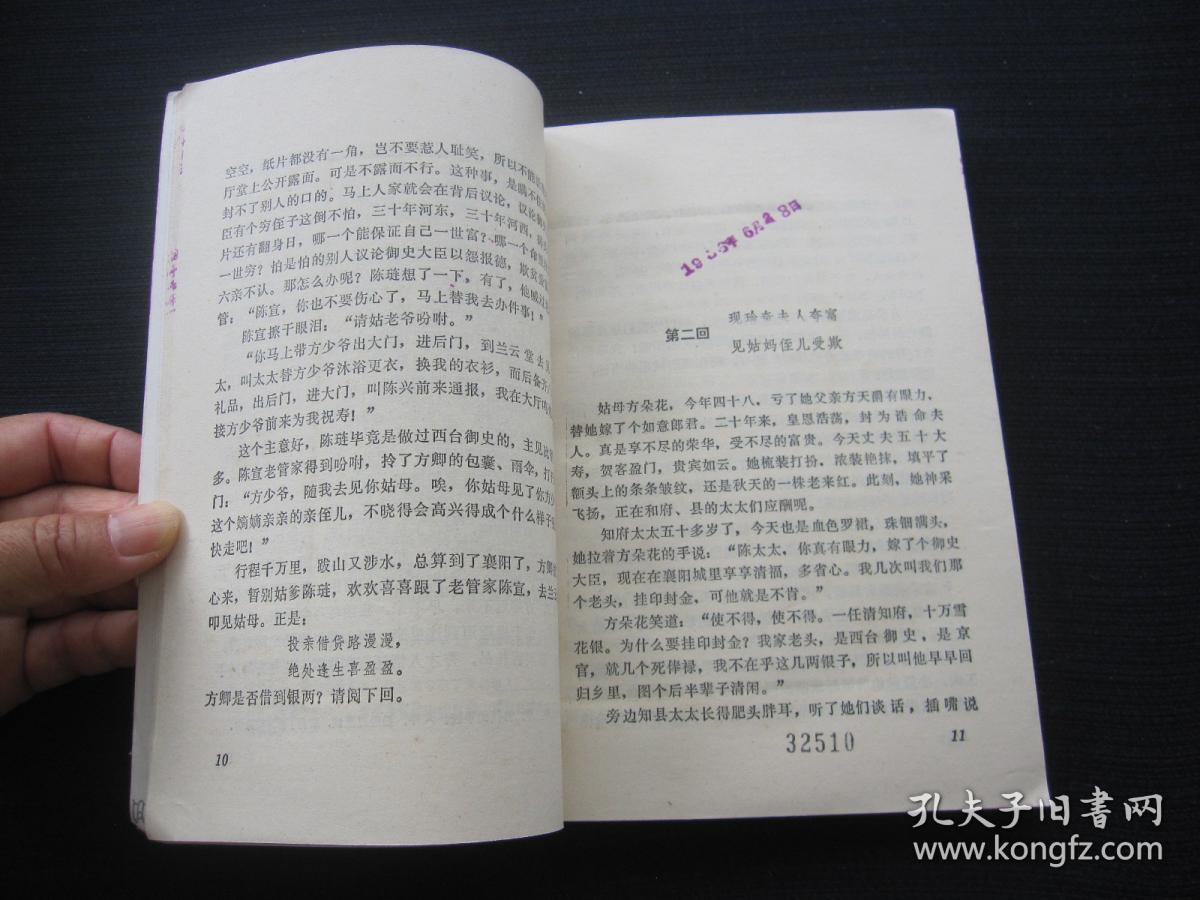 空空，纸片都没有一角，岂不要惹人耻笑，所以不能
厅堂上公开露面。可是不露面不行。这种事，是瞒不
封不了别人的口的。马上人家就会在背后议论，议论
臣有个穷侄子这倒不怕，三十年河东，三十年河西，
片还有翻身日，哪一个能保证自己一世富？哪一个
一世穷？怕是怕的别人议论御史大臣以怨报德，欺贫
六亲不认。那怎么办呢？陈琏想了一下，有了，他
管：“陈宣，你也不要伤心了，马上替我去办件事！”
陈宣擦干眼泪：“请姑老爷吩咐。”
“你马上带方少爷出大门，进后门，到兰云堂去
太，叫太太替方少爷沐浴更衣，换我的衣衫，而后备
礼品，出后门，进大门，叫陈兴前来通报，我在大厅
接方少爷前来为我祝寿！”
这个主意好，陈琏毕竟是做过西台御史的，主见比
多。陈宣老管家得到吩咐，拎了方卿的包囊、雨伞，打
门：“方少爷，随我去见你姑母。唉，你姑母见了你
这个嫡嫡亲亲的亲侄儿，不晓得会高兴得成个什么样子
快走吧！”
行程千万里，跋山又涉水，总算到了襄阳了，方卿
心来，暂别姑爹陈琏，欢欢喜喜跟了老管家陈宣，去兰
叩见姑母。正是：
投亲借贷路漫漫，
绝处逢生喜盈盈。
方卿是否借到银两？请阅下回。
10
6月28日
第二回
现珍奇夫人夸富
见姑妈侄儿受欺
姑母方朵花，今年四十八，亏了她父亲方天爵有眼力，
替她嫁了个如意郎君。二十年来，皇恩浩荡，封为诰命夫
人。真是享不尽的荣华，受不尽的富贵。今天丈夫五十大
寿，贺客盈门，贵宾如云。她梳装打扮，浓装艳抹，填平了
额头上的条条皱纹，还是秋天的一株老来红。此刻，她神采
飞扬，正在和府、县的太太们应酬呢。
知府太太五十多岁了，今天也是血色罗裙，珠钿满头，
她拉着方朵花的手说：“陈太太，你真有眼力，嫁了个御史
大臣，现在在襄阳城里享享清福，多省心。我几次叫我们那
个老头，挂印封金，可他就是不肯。”
方朵花笑道：“使不得，使不得。一任清知府，十万雪
花银。为什么要挂印封金？我家老头，是西台御史，是京
官，就几个死俸禄，我不在乎这几两银子，所以叫他早早回
归乡里，图个后半辈子清闲。”
旁边知县太太长得肥头胖耳，听了她们谈话，插嘴说
32510
11
孔夫子旧书网
www.kongfz.com